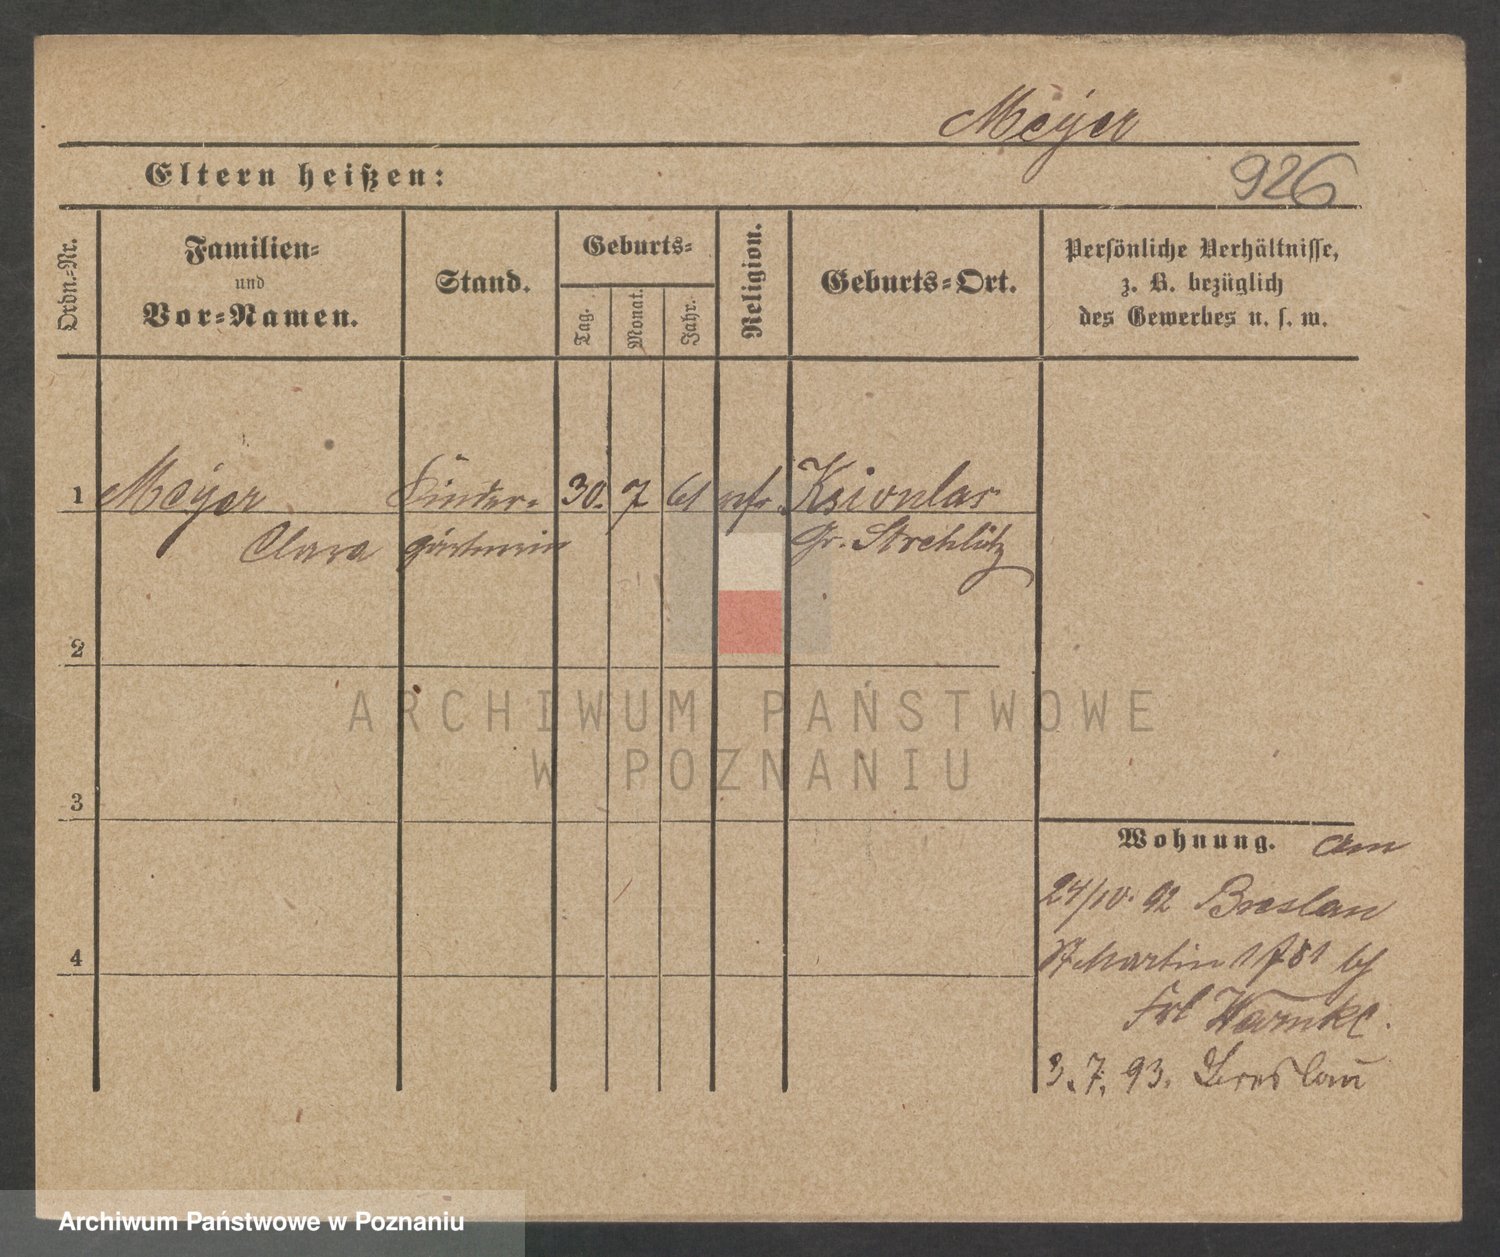 Meyer
926
Eltern heißen:
Ordn.-Nr.
Familien-
und
Vor-Namen.
Stand.
Geburts-
Tag.
Monat.
Jahr.
Religion.
Geburts-Ort.
Persönliche Verhältnisse,
z. B. bezüglich
des Gewerbes u. s. w.
1 Meyer Kinder- 30. 7 61
Clara gärtnerin Gr. Strehlitz
2
3
4
ARCHIWUM PAŃSTWOWE
W POZNANIU
Wohnung. am
24/10. 92 Breslau
St Martin
Frl Warnke.
3. 7. 93. Breslau
Archiwum Państwowe w Poznaniu